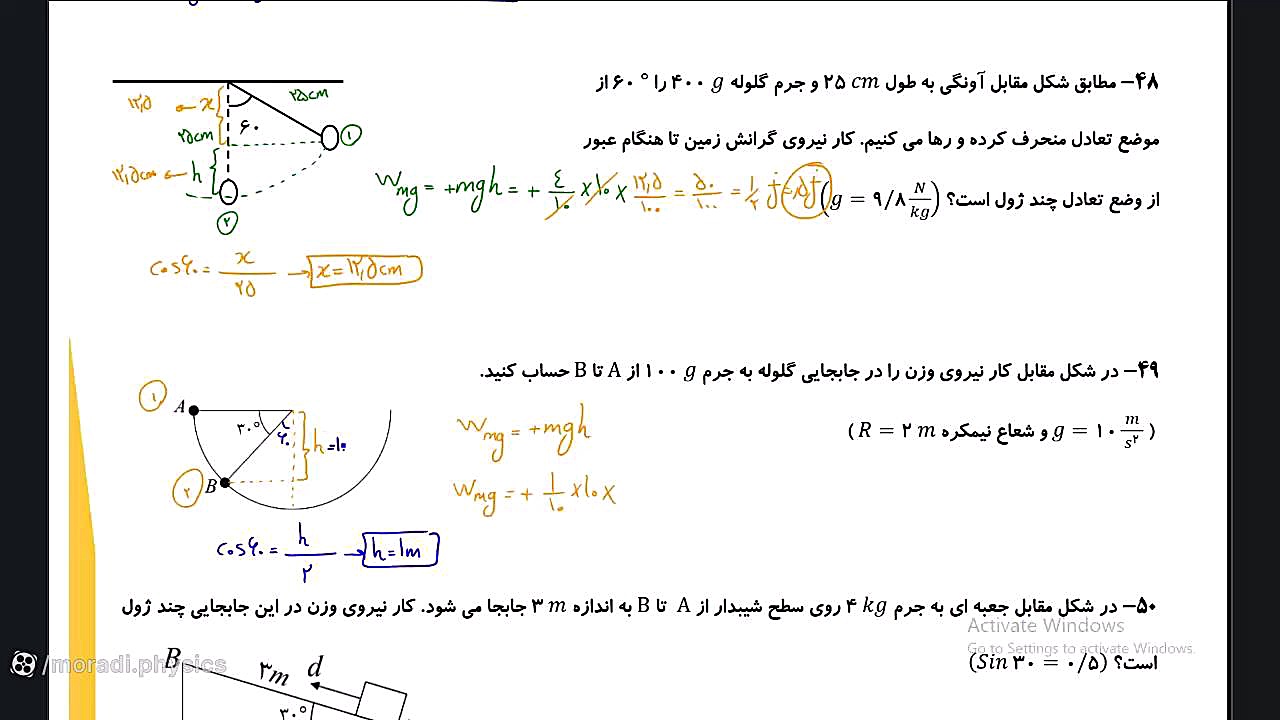 ۴۸– مطابق شکل مقابل آونگی به طول ۲۵ cm و جرم گلوله ۴۰۰ g را ۶۰° از
موضع تعادل منحرف کرده و رها می کنیم. کار نیروی گرانش زمین تا هنگام عبور
از وضع تعادل چند ژول است؟ (g = ۹/۸ N/kg)
۱۲,۵ ← x
۲۵cm
۶۰
۱
۲۵cm
۱۲,۵cm ← h
۲
W mg = +mgh = + ۴/۱۰ × ۱۰ × ۱۲,۵/۱۰۰ = ۵۰/۱۰۰ = ۱/۲ j = ,۵j
cos۶۰ = x/۲۵ → x = ۱۲,۵cm
۴۹– در شکل مقابل کار نیروی وزن را در جابجایی گلوله به جرم ۱۰۰ g از A تا B حساب کنید.
( g = ۱۰ m/s² و شعاع نیمکره R = ۲ m )
۱
A
۳۰°
۶۰
h=۱۰
۲
B
W mg = +mgh
W mg = + ۱/۱۰ ×۱۰×
cos۶۰ = h/۲ → h=۱m
۵۰– در شکل مقابل جعبه ای به جرم ۴ kg روی سطح شیبدار از A تا B به اندازه ۳ m جابجا می شود. کار نیروی وزن در این جابجایی چند ژول
است؟ (Sin ۳۰ = ۰/۵)
B
۳m
d
۳۰°
Activate Windows
Go to Settings to activate Windows.
/moradi.physics